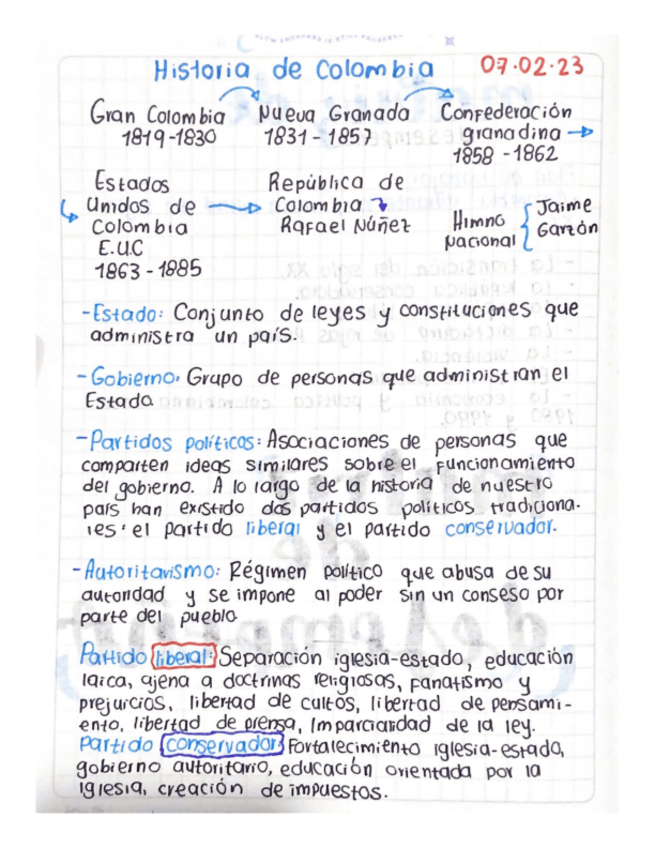 Historia de Colombia 07.02.23
Gran Colombia Nueva Granada Confederación
1819-1830 1831-1857 granadina
1858-1862
Estados República de
Unidos de Colombia Jaime
Colombia Rafael Núñez Himno Garzón
E.U.C Nacional
1863-1885
-Estado: Conjunto de leyes y constituciones que
administra un país.
-Gobierno: Grupo de personas que administran el
Estado
-Partidos políticos: Asociaciones de personas que
comparten ideas similares sobre el funcionamiento
del gobierno. A lo largo de la historia de nuestro
país han existido dos partidos políticos tradiciona-
les: el partido liberal y el partido conservador.
-Autoritarismo: Régimen político que abusa de su
autoridad y se impone al poder sin un conseso por
parte del pueblo
Partido liberal: Separación iglesia-estado, educación
laica, ajena a doctrinas religiosas, fanatismo y
prejuicios, libertad de cultos, libertad de pensami-
ento, libertad de prensa, Imparcialidad de la ley.
Partido conservador: Fortalecimiento iglesia-estado,
gobierno autoritario, educación orientada por la
iglesia, creación de impuestos.